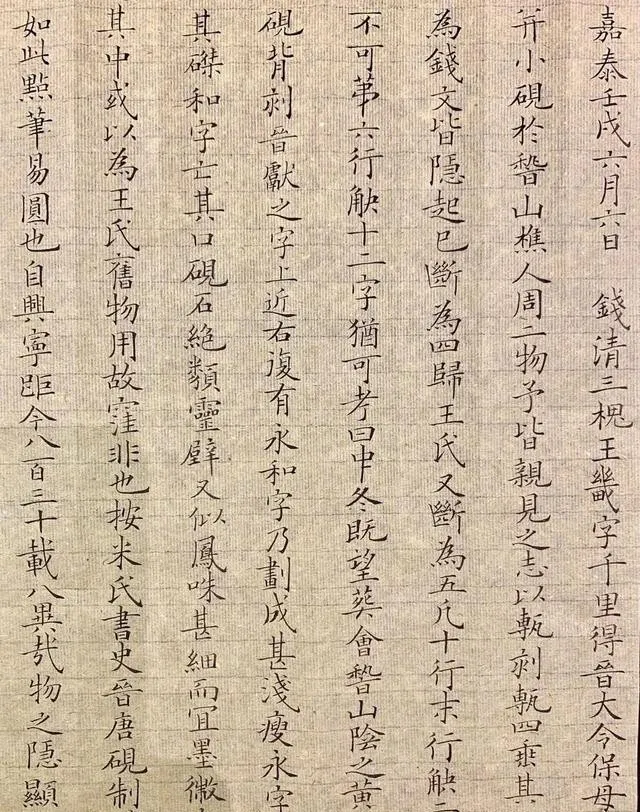 嘉泰壬戌六月六日 錢清三槐王畿字千里得晉大令保母
并小硯於稽山樵人周二物予皆親見之志以甎刻甎四垂其
為錢文皆隱起已斷為四歸王氏又斷為五凡十行末行缺二
不可第六行缺十二字猶可考曰中冬既望葬會稽山陰之黃
硯背刻晉獻之字上近右復有永和字乃劃成甚淺瘦永字
其磔和字亡其口硯石絶類靈璧又似鳳咮甚細而宜墨微
其中或以為王氏舊物用故窪非也按米氏書史晉唐硯制
如此點筆易圓也自興寧距今八百三十載八異哉物之隱顯